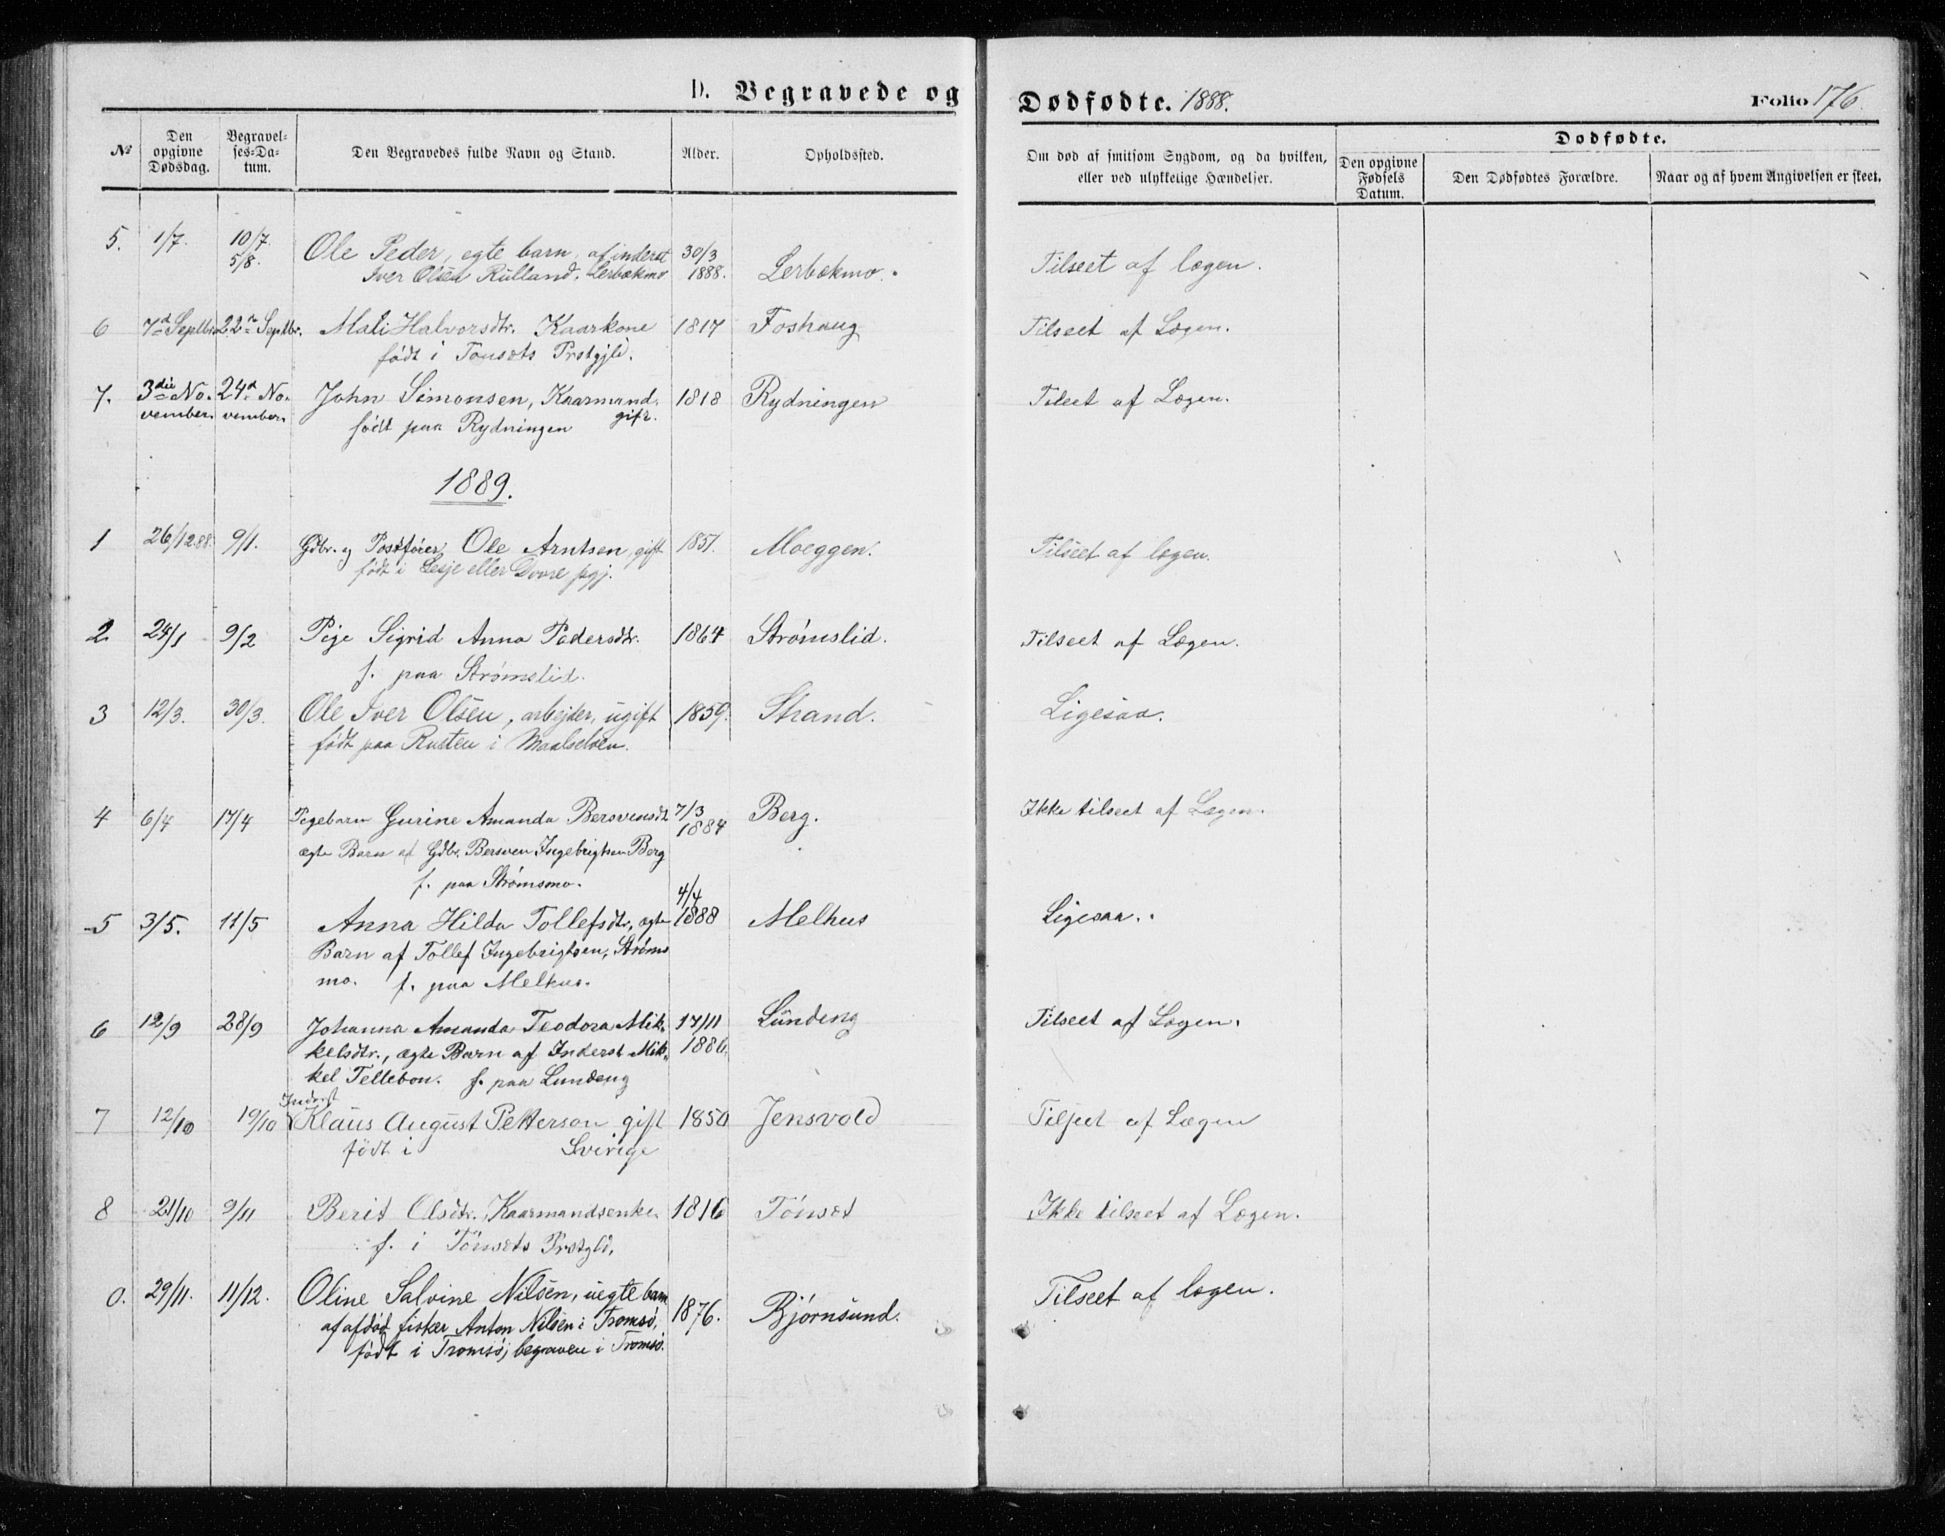 D. Begravede og Dødfødte. 1888. Folio 176.
№ Den opgivne Dødsdag. Begravelses-Datum. Den Begravedes fulde Navn og Stand. Alder. Opholdssted. Om død af smitsom Sygdom, og da hvilken, eller ved ulykkelige Hændelser. Dødfødte. Den opgivne Fødsels Datum. Den Dødfødtes Forældre. Naar og af hvem Angivelsen er skeet.
5. 1/7. 10/7. 5/8. Ole Peder, egte barn, af inderst 30/3 1888. Lerbækmo. Tilseet af lægen.
Iver Olsen Rulland, Lerbækmo
6 7d Septbr 22n Septbr. Mali Halvorsdtr. Kaarkone 1817 Foshaug Tilseet af Lægen.
født i Tønsets Prstgjld.
7. 3die November 24d November John Simonsen, Kaarmand. 1818 Rydningen Tilseet af Lægen.
født paa Rydningen gift.
1889.
1 26/12.88. 9/1. Gdbr. og Postfører Ole Arntsen, gift 1851. Moeggen. Tilseet af lægen.
født i Lesje eller Dovre pgj.
2 24/1 9/2 Pige Sigrid Anna Pedersdtr. 1864 Strømslid. Tilseet af Lægen.
f. paa Strømslid.
3 12/3. 30/3. Ole Iver Olsen, arbejder, ugift 1859. Strand. Ligesaa.
født paa Rusten i Maalselven.
4 6/4 17/4 Pigebarn Gurine Amanda Bersvensdt. 7/3 1884 Berg. Ikke tilseet af Lægen.
ægte Barn af Gdbr. Bersven Ingebrigtsen Berg
f. paa Strømsmo.
5 3/5. 11/5 Anna Hilda Tollefsdtr., ægte 4/4 1888 Melhus Ligesaa.
Barn af Tollef Ingebrigtsen, Strøms
mo. f. paa Melhus.
6 12/9 28/9 Johanna Amanda Teodora Mik- 17/11 1886. Lundeng Tilseet af Lægen.
kelsdtr., ægte Barn af Inderst Mik-
kel Tellebon. f. paa Lundeng
7 12/10 19/10 Inderst Klaus August Petterson gift 1850 Jensvold Tilseet af Lægen
født i Sverige
8 21/10 9/11 Berit Olsdtr. Kaarmandsenke 1816 Tønset Ikke tilseet af Lægen.
f. i Tønsets Prstgld.
0. 29/11. 11/12. Oline Salvine Nilsen, uegte barn 1876. Bjørnsund. Tilseet af lægen.
af afdød fisker Anton Nilsen i Tromsø,
født i Tromsø, begraven i Tromsø.